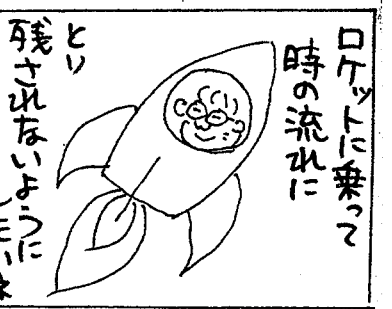 ロケットに乗って
時の流れに
とり
残されないように
したいネ